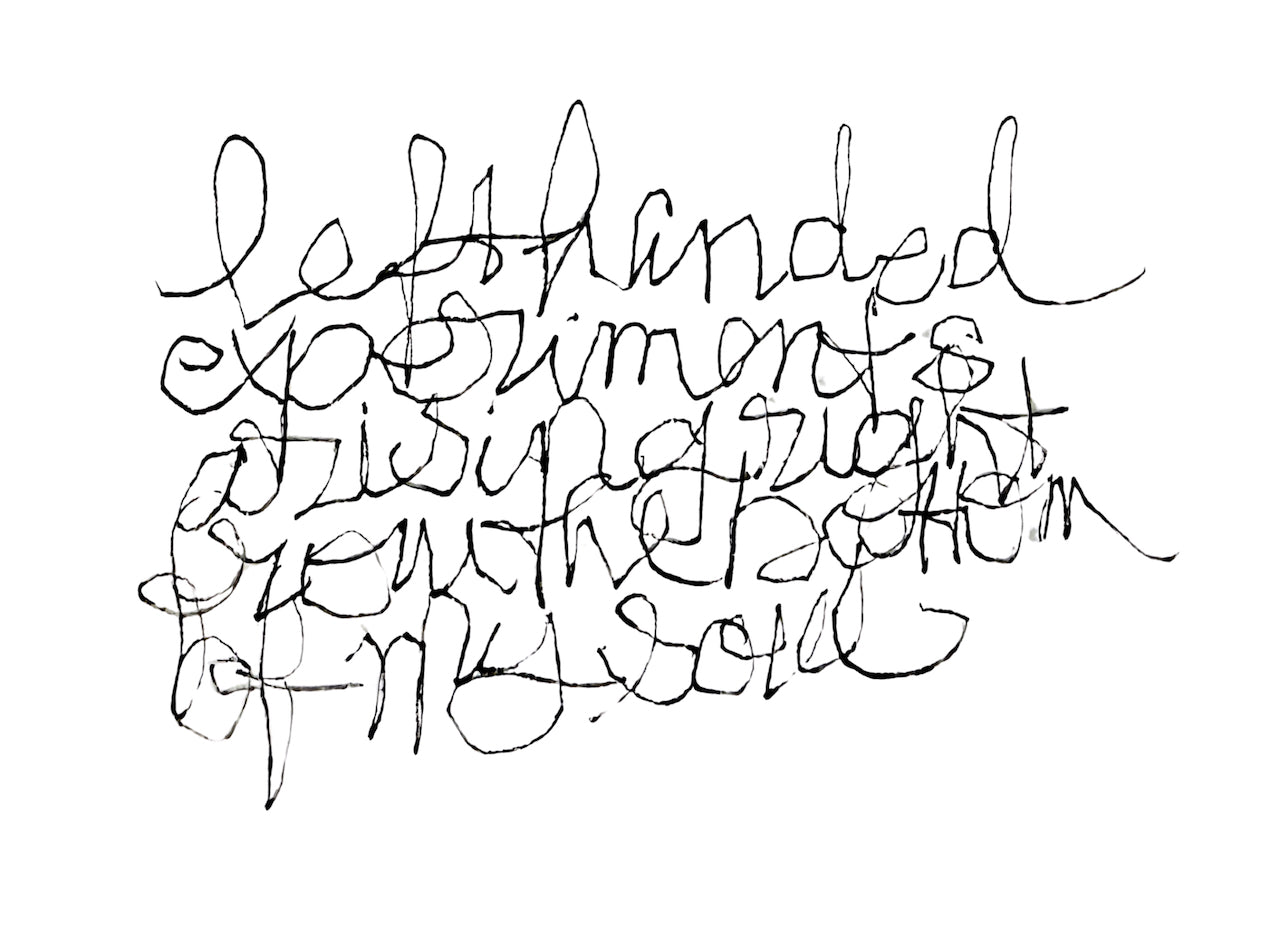 lefthanded
experiments
arising right
from the bottom
of my soul